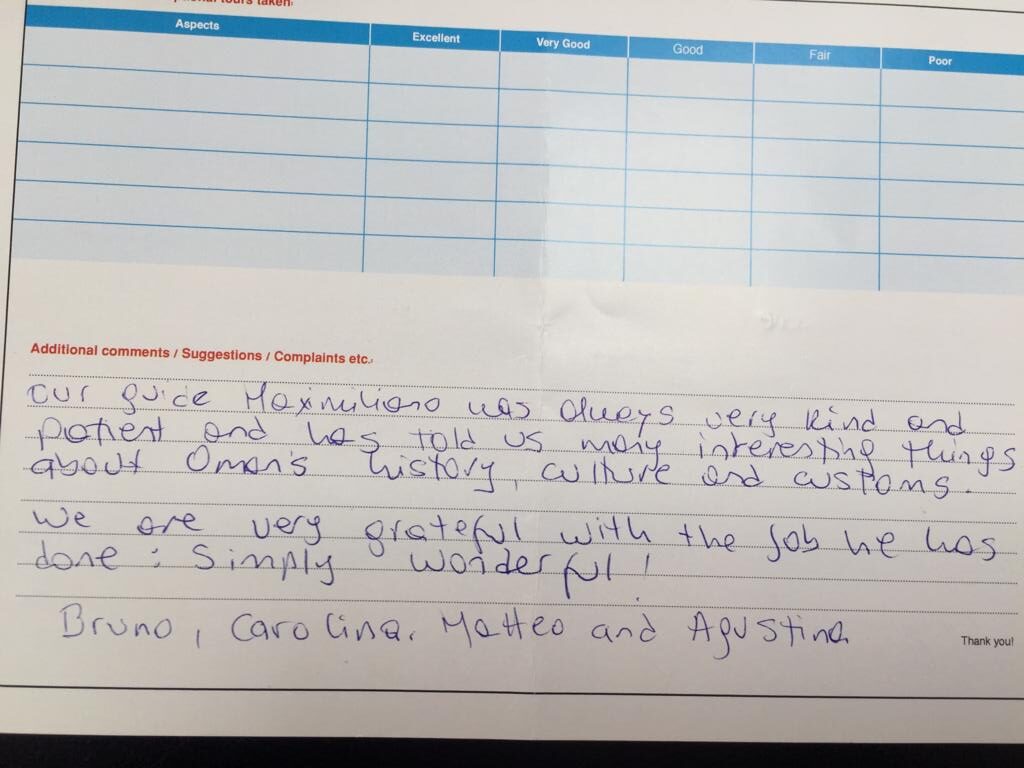 tours taken:
Aspects Excellent Very Good Good Fair Poor
Additional comments / Suggestions / Complaints etc.
our guide Maximiliano was always very kind and
patient and has told us many interesting things
about Oman's history, culture and customs.
We are very grateful with the job he has
done: Simply wonderful!
Bruno, Carolina, Matteo and Agustina
Thank you!